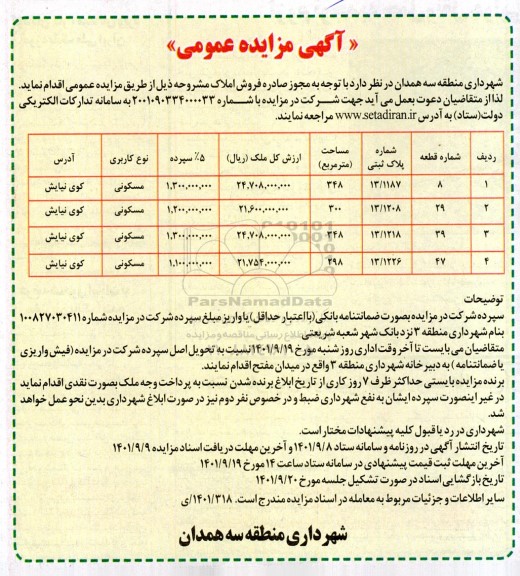 « آگهی مزایده عمومی»
شهرداری منطقه سه همدان در نظر دارد با توجه به مجوز صادره فروش املاک مشروحه ذیل از طریق مزایده عمومی اقدام نماید.
لذا از متقاضیان دعوت بعمل می آید جهت شرکت در مزایده با شماره ۲۰۰۱۰۹۰۳۳۴۰۰۰۰۳۳ به سامانه تدارکات الکتریکی
دولت(ستاد) به آدرس www.setadiran.ir مراجعه نمایند.
ردیف شماره قطعه شماره پلاک ثبتی مساحت (مترمربع) ارزش کل ملک (ریال) ۵٪ سپرده نوع کاربری آدرس
۱ ۸ ۱۳/۱۱۸۷ ۳۴۸ ۲۴.۷۰۸.۰۰۰.۰۰۰ ۱.۳۰۰.۰۰۰.۰۰۰ مسکونی کوی نیایش
۲ ۲۹ ۱۳/۱۲۰۸ ۳۰۰ ۲۱.۶۰۰.۰۰۰.۰۰۰ ۱.۲۰۰.۰۰۰.۰۰۰ مسکونی کوی نیایش
۳ ۳۹ ۱۳/۱۲۱۸ ۳۴۸ ۲۴.۷۰۸.۰۰۰.۰۰۰ ۱.۳۰۰.۰۰۰.۰۰۰ مسکونی کوی نیایش
۴ ۴۷ ۱۳/۱۲۲۶ ۴۹۸ ۲۱.۷۵۴.۰۰۰.۰۰۰ ۱.۱۰۰.۰۰۰.۰۰۰ مسکونی کوی نیایش
ParsNamadData
توضیحات
سپرده شرکت در مزایده بصورت ضمانتنامه بانکی (با اعتبار حداقل) یا واریز مبلغ سپرده شرکت در مزایده شماره ۱۰۰۸۲۷۰۳۰۴۱۱
بنام شهرداری منطقه ۳ نزد بانک شهر شعبه شریعتی
متقاضیان می بایست تا آخر وقت اداری روز شنبه مورخ ۱۴۰۱/۹/۱۹ نسبت به تحویل اصل سپرده شرکت در مزایده (فیش واریزی
یا ضمانتنامه ) به دبیرخانه شهرداری منطقه ۳ واقع در میدان مفتح اقدام نمایند.
برنده مزایده بایستی حداکثر ظرف ۷ روز کاری از تاریخ ابلاغ برنده شدن نسبت به پرداخت وجه ملک بصورت نقدی اقدام نماید
در غیر اینصورت سپرده ایشان به نفع شهرداری ضبط و در خصوص نفر دوم نیز در صورت ابلاغ شهرداری بدین نحو عمل خواهد
شد.
شهرداری در رد یا قبول کلیه پیشنهادات مختار است.
تاریخ انتشار آگهی در روزنامه و سامانه ستاد ۱۴۰۱/۹/۸ و آخرین مهلت دریافت اسناد مزایده ۱۴۰۱/۹/۹
آخرین مهلت ثبت قیمت پیشنهادی در سامانه ستاد ساعت ۱۴ مورخ ۱۴۰۱/۹/۱۹
تاریخ بازگشایی اسناد در صورت تشکیل جلسه مورخ ۱۴۰۱/۹/۲۰
سایر اطلاعات و جزئیات مربوط به معامله در اسناد مزایده مندرج است. ۱۴۰۱/۳۱۸/ی
شهرداری منطقه سه همدان